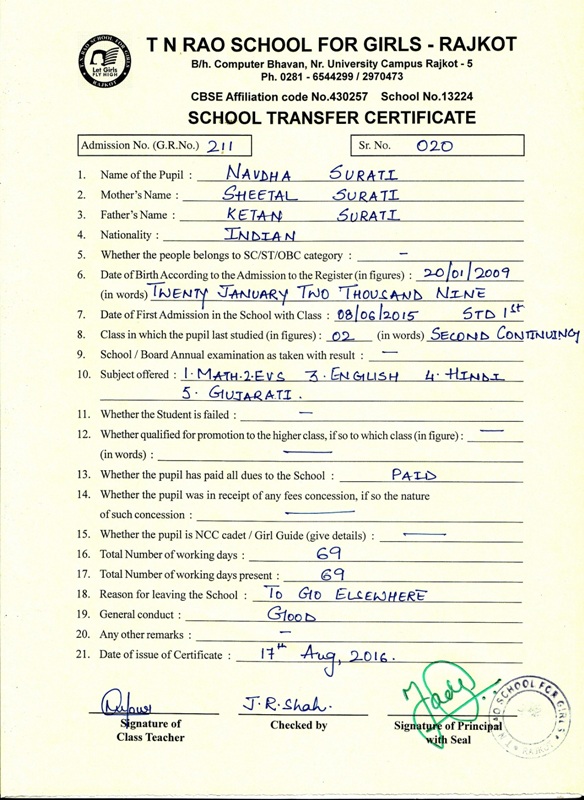 T. N. RAO SCHOOL FOR GIRLS
Let Girls
FLY HIGH
RAJKOT
T N RAO SCHOOL FOR GIRLS - RAJKOT
B/h. Computer Bhavan, Nr. University Campus Rajkot - 5
Ph. 0281 - 6544299 / 2970473
CBSE Affiliation code No.430257 School No.13224
SCHOOL TRANSFER CERTIFICATE
Admission No. (G.R.No.) 211 Sr. No. 020
1. Name of the Pupil : NAVDHA SURATI
2. Mother's Name : SHEETAL SURATI
3. Father's Name : KETAN SURATI
4. Nationality : INDIAN
5. Whether the people belongs to SC/ST/OBC category : –
6. Date of Birth According to the Admission to the Register (in figures) : 20/01/2009
(in words) TWENTY JANUARY TWO THOUSAND NINE
7. Date of First Admission in the School with Class : 08/06/2015 STD 1st
8. Class in which the pupil last studied (in figures) : 02 (in words) SECOND CONTINUING
9. School / Board Annual examination as taken with result : —
10. Subject offered : 1. MATH. 2. EVS 3. ENGLISH 4. HINDI
5. GUJARATI.
11. Whether the Student is failed : —
12. Whether qualified for promotion to the higher class, if so to which class (in figure) : —
(in words) : —
13. Whether the pupil has paid all dues to the School : PAID
14. Whether the pupil was in receipt of any fees concession, if so the nature
of such concession : —
15. Whether the pupil is NCC cadet / Girl Guide (give details) : —
16. Total Number of working days : 69
17. Total Number of working days present : 69
18. Reason for leaving the School : TO GO ELSEWHERE
19. General conduct : GOOD
20. Any other remarks : –
21. Date of issue of Certificate : 17th Aug, 2016.
J.R.Shah.
Signature of Checked by Signature of Principal
Class Teacher with Seal
T. N. RAO SCHOOL FOR GIRLS
RAJKOT